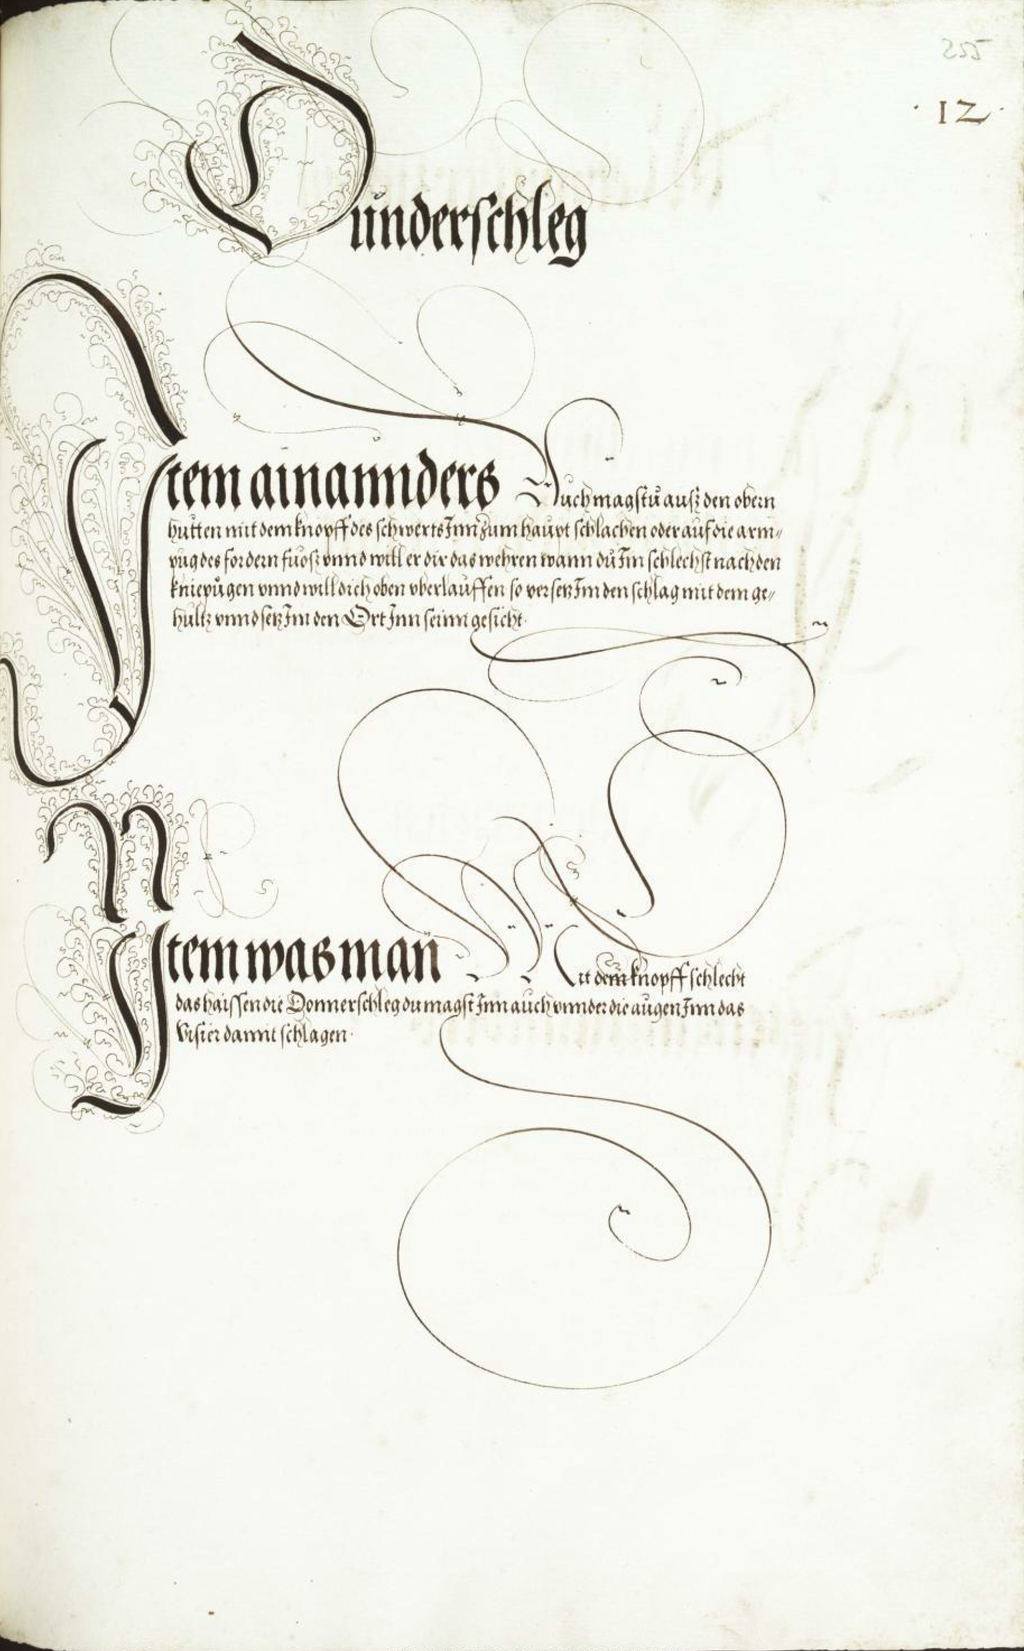 255
· 12 ·
Dunderschleg
Item ain annders Auch magstu ausz den obern
hutten mit dem knopff des schwerts Inn zum haupt schlachen oder auf die arm„
pug des fordern fuosz vnnd will er dir das wehren wann du Im schlechst nach den
kniepugen vnnd will dich oben vberlauffen so versetz Im den schlag mit dem ge„
hultz vnnd setz Im den Ort Inn seinn gesicht.
Item was man Mit dem knopff schlecht
das haissen die Donnerschleg du magst Inn auch vnnder die augen Inn das
Visier damit schlagen.